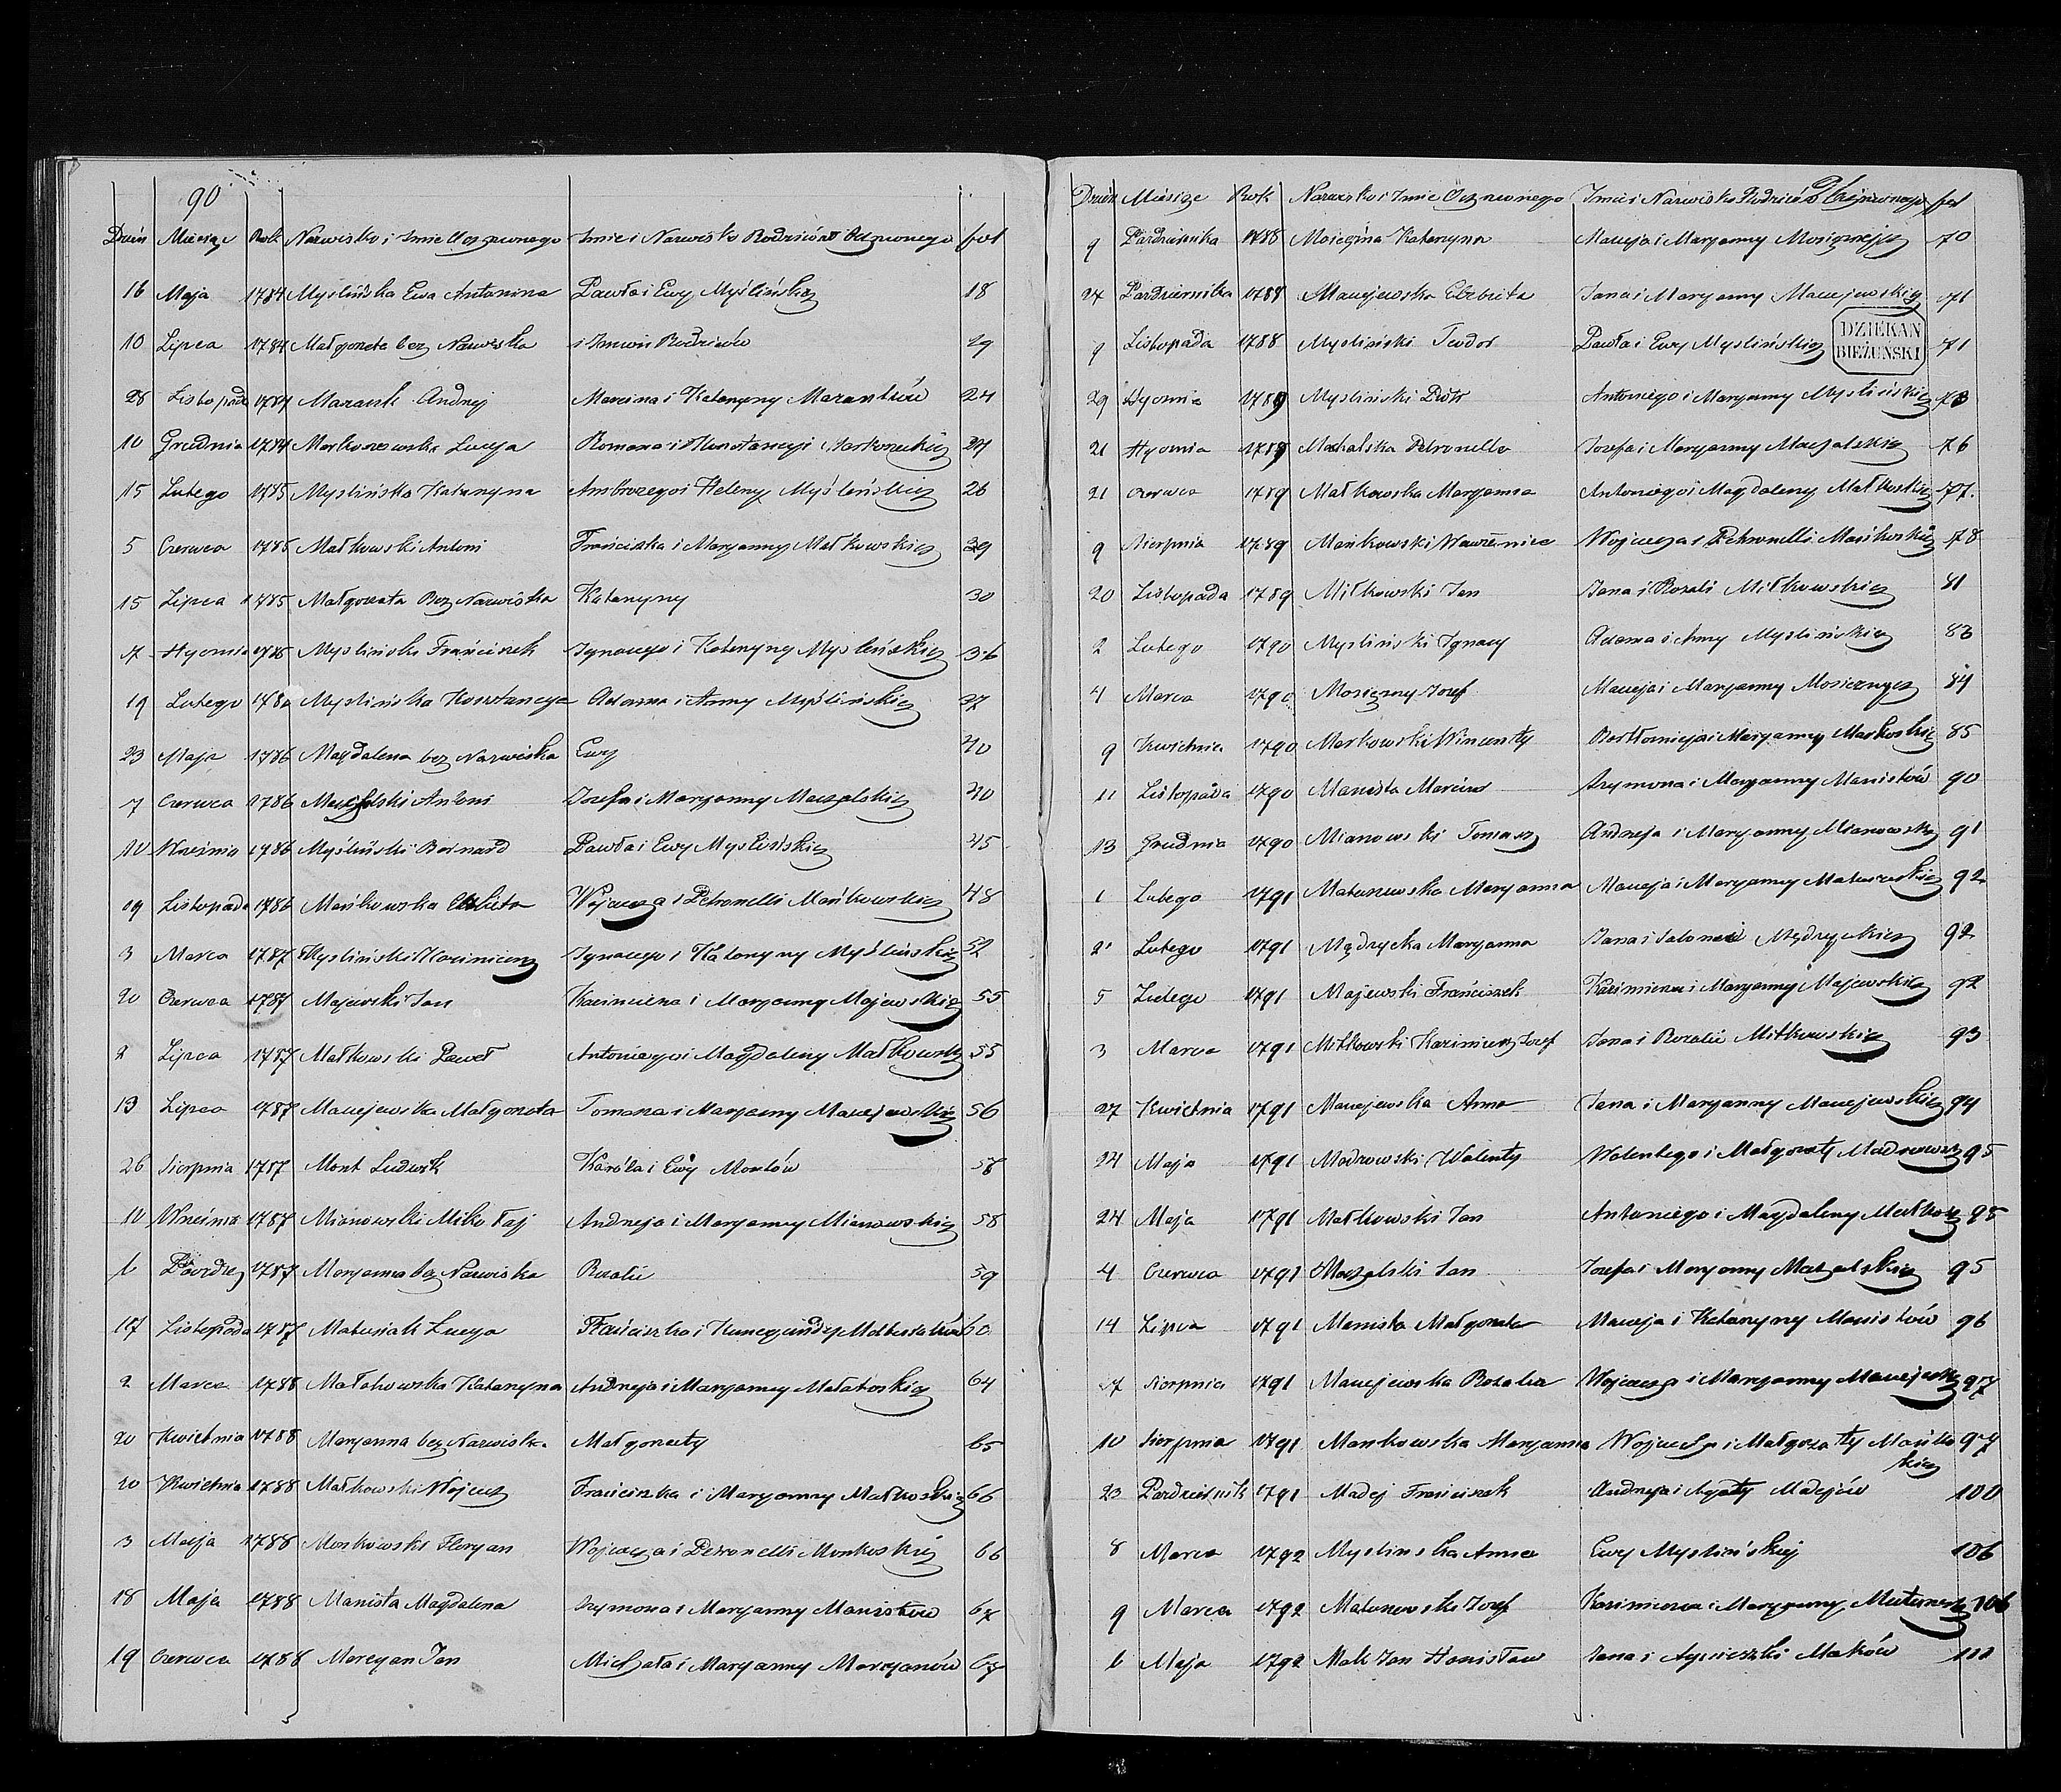 90
Dzień Miesiąc Rok Nazwisko i Imie Oczczonego Imie i Nazwisko Rodziców Oczczonego fol
16 Maja 1784 Myslińska Ewa Antonina Pawła i Ewy Myślińskich 18
10 Lipca 1784 Małgorzata bez Nazwiska i Imion Rodziców 29
28 Listopada 1784 Mazant Andrzej Marcina i Katarzyny Mazantków 24
10 Grudnia 1784 Markoszewska Lucya Romana i Konstancyi 24
15 Lutego 1785 Myslińska Katarzyna Ambrozego i Heleny Myślińskich 26
5 Czerwca 1785 Małkowski Antoni Franciszka i Maryanny Małkowskich 29
15 Lipca 1785 Małgorzata Bez Nazwiska Katarzyny 30
Stycznia Myslinski Franciszek Ignacego i Katarzyny Myslińskich 36
19 Lutego Myslińska Konstancya Adama i Anny Myślińskich 37
23 Maja 1786 Magdalena bez Nazwiska Ewy 40
7 Czerwca 1786 Antoni Jozefa i Maryanny Maczalskich 40
10 Wrzesnia 1786 Myśliński Bernard Pawła i Ewy Myslińskich 45
19 Listopada 1786 Mańkowska Elzbieta Wojciecha i Petronelli Mańkowskich 48
3 Marca 1787 Mysliński Kazimierz Ignacego i Katarzyny Myślińskich 52
20 Czerwca 1787 Majewski Jan Kazimierza i Maryanny Majewskich 55
2 Lipca 1787 Małkowski Paweł Antoniego i Magdaleny Małkowskich 55
13 Lipca 1787 Maciejewska Małgorzata Tomasza i Maryanny Maciejewskich 56
26 Sierpnia 1787 Mont Ludwik Karóla i Ewy Montów 58
10 Wrzesnia 1787 Mianowski Mikołaj Andrzeja i Maryanny Mianowskich 58
Pazdz 1787 Maryanna bez Nazwiska Rozalii 59
17 Listopada 1787 Matusiak Lucya Franciszka i Kunegundy Matusiaków 60
2 Marca 1788 Małachowska Katarzyna Andrzeja i Maryanny 64
20 Kwietnia 1788 Maryanna bez Nazwiska Małgorzaty 65
20 Kwietnia 1788 Małkowski Wojciech Franciszka i Maryanny Małkoskich 66
3 Maja 1788 Monkowski Floryan Wojciecha i Petronelli Monkoskich 66
18 Maja 1788 Manista Magdalena Szymona i Maryanny Manistów 67
19 Czerwca 1788 Morcyan Jan Michała i Maryanny Morcyanów 67
Dzień Miesiąc Rok Nazwisko i Imie Oczczonego Imie i Nazwisko Rodziców Oczczonego fol
9 Pazdziernika 1788 Katarzyna Macieja i Maryanny 70
27 Pazdziernika 1788 Maciejewska Elzbieta Jana i Maryanny Maciejewskich 71
9 Listopada 1788 Mysliński Teodor Pawła i Ewy Myslińskich 71
DZIEKAN
BIEŻUŃSKI
29 Stycznia 1789 Mysliński Piotr Antoniego i Maryanny Myslińskich 73
21 Stycznia 1789 Petronella Jozefa i Maryanny Maczalskich 76
21 Czerwca 1789 Małkowska Maryanna Antoniego i Magdaleny Małkoskich 77.
9 Sierpnia 1789 Mańkowski Wawrzeniec Wojciecha i Petronelli Mańkoskich 78
20 Listopada 1789 Miłkowski Jan Jana i Rozali Miłkowskich 81
2 Lutego 1790 Mysliński Ignacy Adama i Anny Myslińskich 83
4 Marca 1790 Mosiężny Jozef Macieja i Maryanny Mosieznych 84
9 Kwietnia 1790 Markowski Wincenty Bartłomieja i Maryanny Markoskich 85
11 Listopada 1790 Manista Marcin Szymona i Maryanny Manistów 90
13 Grudnia 1790 Mianowski Tomasz Andrzeja i Maryanny Mianowskich 91
1 Lutego 1791 Maryanna Macieja i Maryanny 92
2 Lutego 1791 Mądrzycka Maryanna Jana i Salomei Mądrzyckich 92
5 Lutego 1791 Majewski Franciszek Kazimierza i Maryanny Majewskich 92
3 Marca 1791 Miłkowski Kazimierz Jozef Jana i Rozalii Miłkowskich 93
27 Kwietnia 1791 Maciejewska Anna Jana i Maryanny Maciejewskich 94
24 Maja 1791 Madrowski Walenty Walentego i Małgorzaty 95
24 Maja 1791 Małkowski Jan Antoniego i Magdaleny 95
4 Czerwca 1791 Maczalski Jan Jozefa i Maryanny Maczalskich 95
14 Lipca 1791 Manista Małgorzata Macieja i Katarzyny Manistów 96
27 Sierpnia 1791 Maciejewska Rozalia Wojciecha i Maryanny 97
10 Sierpnia 1791 Mankowska Maryanna Wojciecha i Małgorzaty Mańko
skich 97
23 Pazdziernik 1791 Madej Franciszek Andrzeja i Agaty Madejów 100
8 Marca 1792 Myslinska Anna Ewy Myslińskiej 106
9 Marca 1792 Jozef Kazimierza i Maryanny 106
Maja 1792 Mak Jan Stanisław Jana i Agnieszki Maków 111